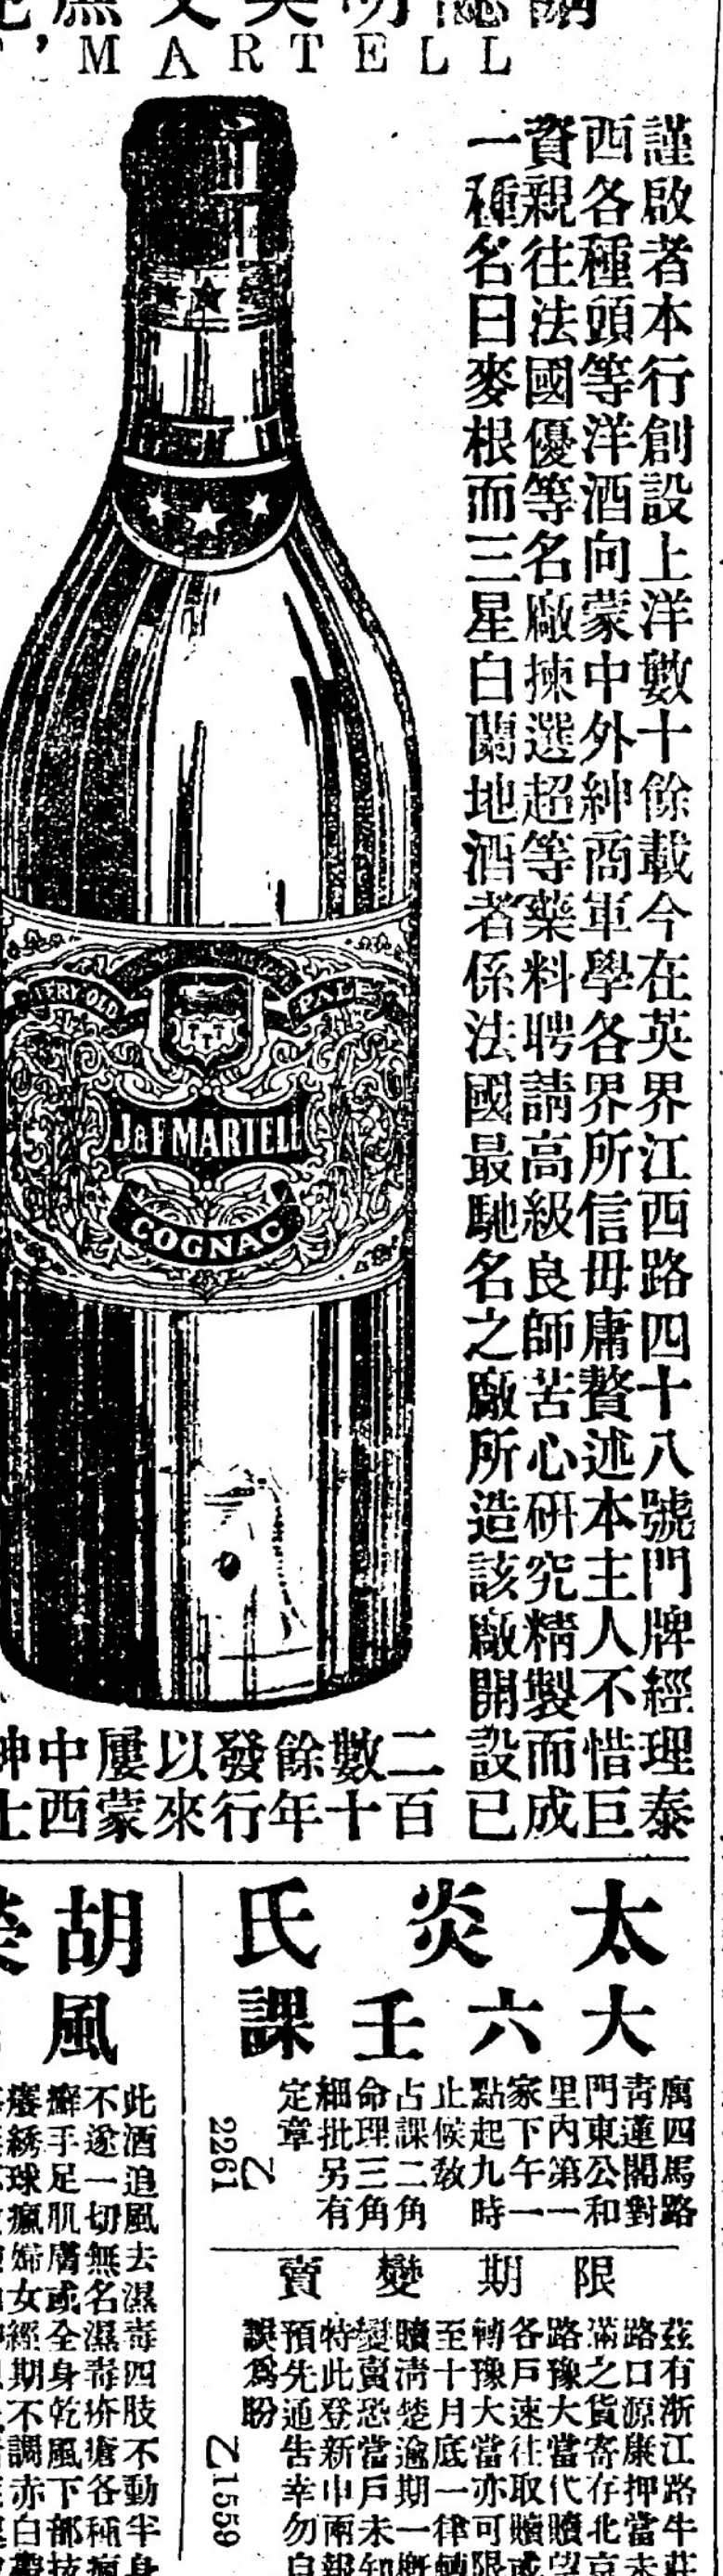 'MARTELL
謹啟者本行創設上洋數十餘載今在英界江西路四十八號門牌經理泰
西各種頭等洋酒向蒙中外紳商軍學各界所信毋庸贅述本主人不惜巨
資親往法國優等名廠揀選超等藥料聘請高級良師苦心研究精製而成
一種名曰麥根而三星白蘭地酒者係法國最馳名之廠所造該廠開設已
二百
數十
餘年
發行
以來
屢蒙
中西
紳士
VERY OLD
PALE
J&F MARTELL
COGNAC
太炎氏
大六壬課
寓四馬路
青蓮閣對
門東公和
里內第一
家下午一
點起九時
止候敎
占課二角
命理三角
細批另有
定章
乙
2261
限期變賣
茲有浙江路牛莊
路口源康押當未
滿之貨寄存北京
路豫大當代贖望
各戶速往取贖或
轉豫大當亦可限
至十月底一律
贖清楚逾期一槪
變賣恐當戶未知
特此登新申兩報
預先通告幸勿自
誤爲盼
乙1559
胡
風
此酒追風去濕毒四肢不動半身
不遂一切無名濕毒疥瘡各種瘋
癬手足肌膚或全身乾風下部技
繡球瘋婦女經期不調赤白